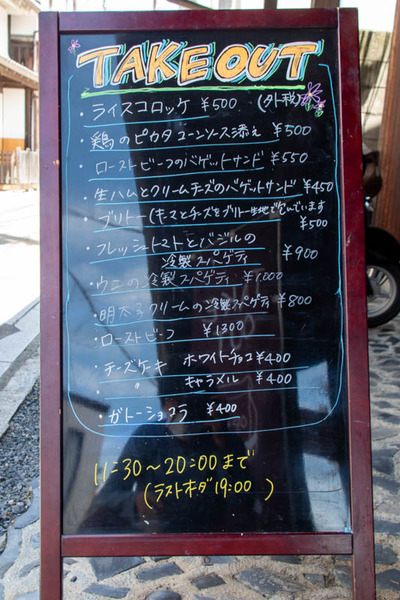 TAKE OUT
・ライスコロッケ ¥500 (外税)
・鶏のピカタ コーンソース添え ¥500
・ローストビーフのバゲットサンド ¥550
・生ハムとクリームチーズのバゲットサンド ¥450
・ブリトー(キーマとチーズをブリトー生地で包んでいます
¥500
・フレッシュトマトとバジルの
冷製スパゲティ ¥900
・ウニの冷製スパゲティ ¥1,000
・明太子クリームの冷製スパゲティ ¥800
・ローストビーフ ¥1300
・チーズケーキ ホワイトチョコ¥400
〃 キャラメル ¥400
・ガトーショコラ ¥400
11:30～20:00まで
(ラストオーダ19:00 )